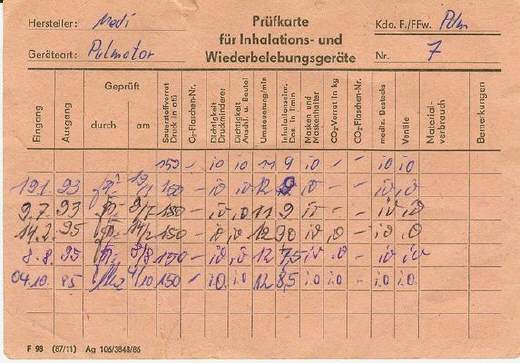 Hersteller: Medi
Prüfkarte
für Inhalations- und
Wiederbelebungsgeräte
Kdo. F./FFw.
Geräteart: Pulmotor
Nr. 7
Eingang
Ausgang
Geprüft
durch
am
Sauerstoffvorrat Druck in atü
O₂-Flaschen-Nr.
Dichtigkeit Druckminderer
Dichtigkeit Anschl. u. Beutel
Umsteuerung/min
Masken und Maskenhalter
CO₂-Vorrat in kg
CO₂-Flaschen-Nr.
mediz. Bestecke
Ventile
Material-verbrauch
Bemerkungen
150 – i0 i0 11 9 i0 – – i0 i0
19.1. 93 150 – i0 i0 12 9 i0 – – i0 i0
9.7. 93 150 – i0 i0 11 9 i0 – – i0 i0
14.2. 95 150 – i0 i0 12
8.8. 95 8/8 150 – i0 i0 12 7,5 i0 – – i0 i0
04.10. 95 4/10 150 – i.0 i.0 12 8,5 i.0 – – i.0 i.0
F 98 (87/11) Ag 106/3848/86